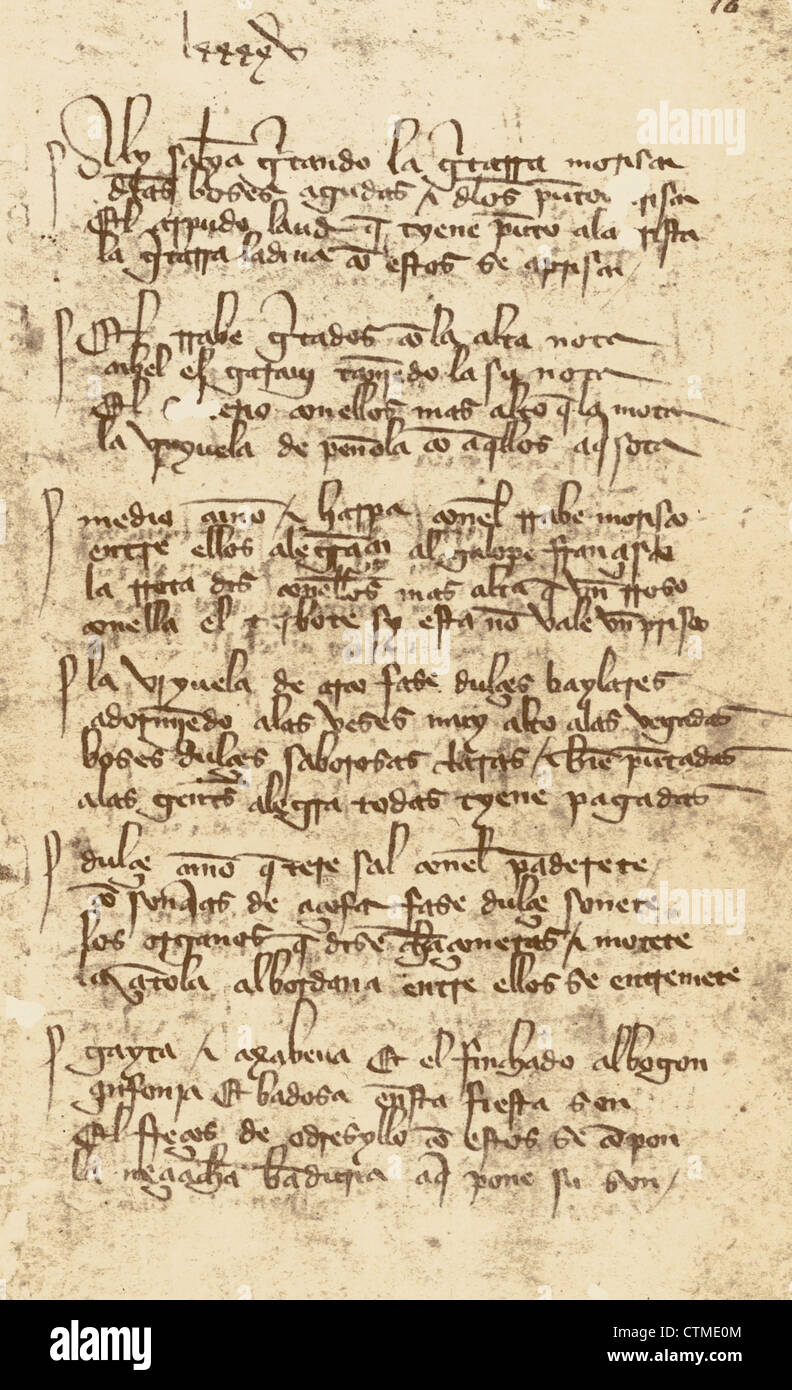 lxxxv
Aly salya gritando la gitarra morisca
delas boses agudas e delos puntos arisca
El corpudo laud que tyene punto ala trisca
la gitarra ladina con estos se aprisca
El rrabe gritador con la alta nota
cabel el garauy tanniendo la su nota
El salterio con ellos mas alto que la mota
la vyyuela de pennola con aquellos ay sota
medio canno e harpa con el rrabe morisco
entre ellos alegrança al galope françisco
la rrota dis con ellos mas alta que vn rrisco
con ella el taborete sy esta non vale vn prisco
la vyyuela de arco fase dulçes vayladas
adormiendo alas veses muy alto alas vegadas
boses dulçes saborosas claras e bien puntadas
alas gentes alegra todas tyene pagadas
dulçe canno entero sal con el panderete
con sonajas de açofar fase dulçe sonete
los organos que disen chançonetas e motete
la çitola albordana entre ellos se entremete
gayta e axabeua El el finchado albogon
çinfonia El baldosa en esta fiesta son
El françes odresyllo con estos se conpon
la neçiacha vandurria aqui pone su son
alamy
Image ID: CTME0M
www.alamy.com